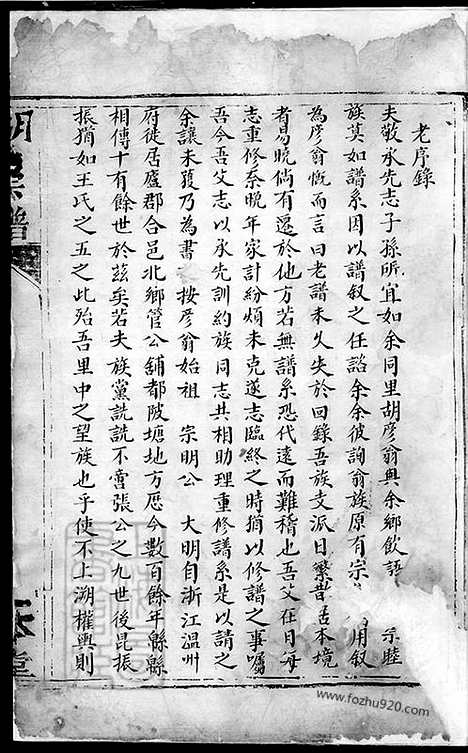 老序錄
夫敬承先志子孫所宜如余同里胡彥翁與余鄉飲語 示睦
族莫如譜系因以譜叙之任諮余余彼詢翁族原有宗 用叙
為彥翁慨而言曰老譜未久失於回錄吾族支派日繁昔居本境
者易曉倘有遷於他方若無譜系恐代遠而難稽也吾父在日每
志重修奈晚年家計紛煩未克遂志臨終之時猶以修譜之事囑
吾今吾父志以承先訓約族同志共相助理重修譜系是以請之
余讓未獲乃為書之按彥翁始祖 宗明公 大明自浙江溫州
府徙居廬郡合邑北鄉管公舖都陂塘地方歷今數百餘年縣縣
相傳十有餘世於茲矣若夫族黨詵詵不啻張公之九世後昆振
振猶如王氏之五之此殆吾里中之望族也乎使不上溯權輿則
胡 宗譜
堂
www.fozhu920.com